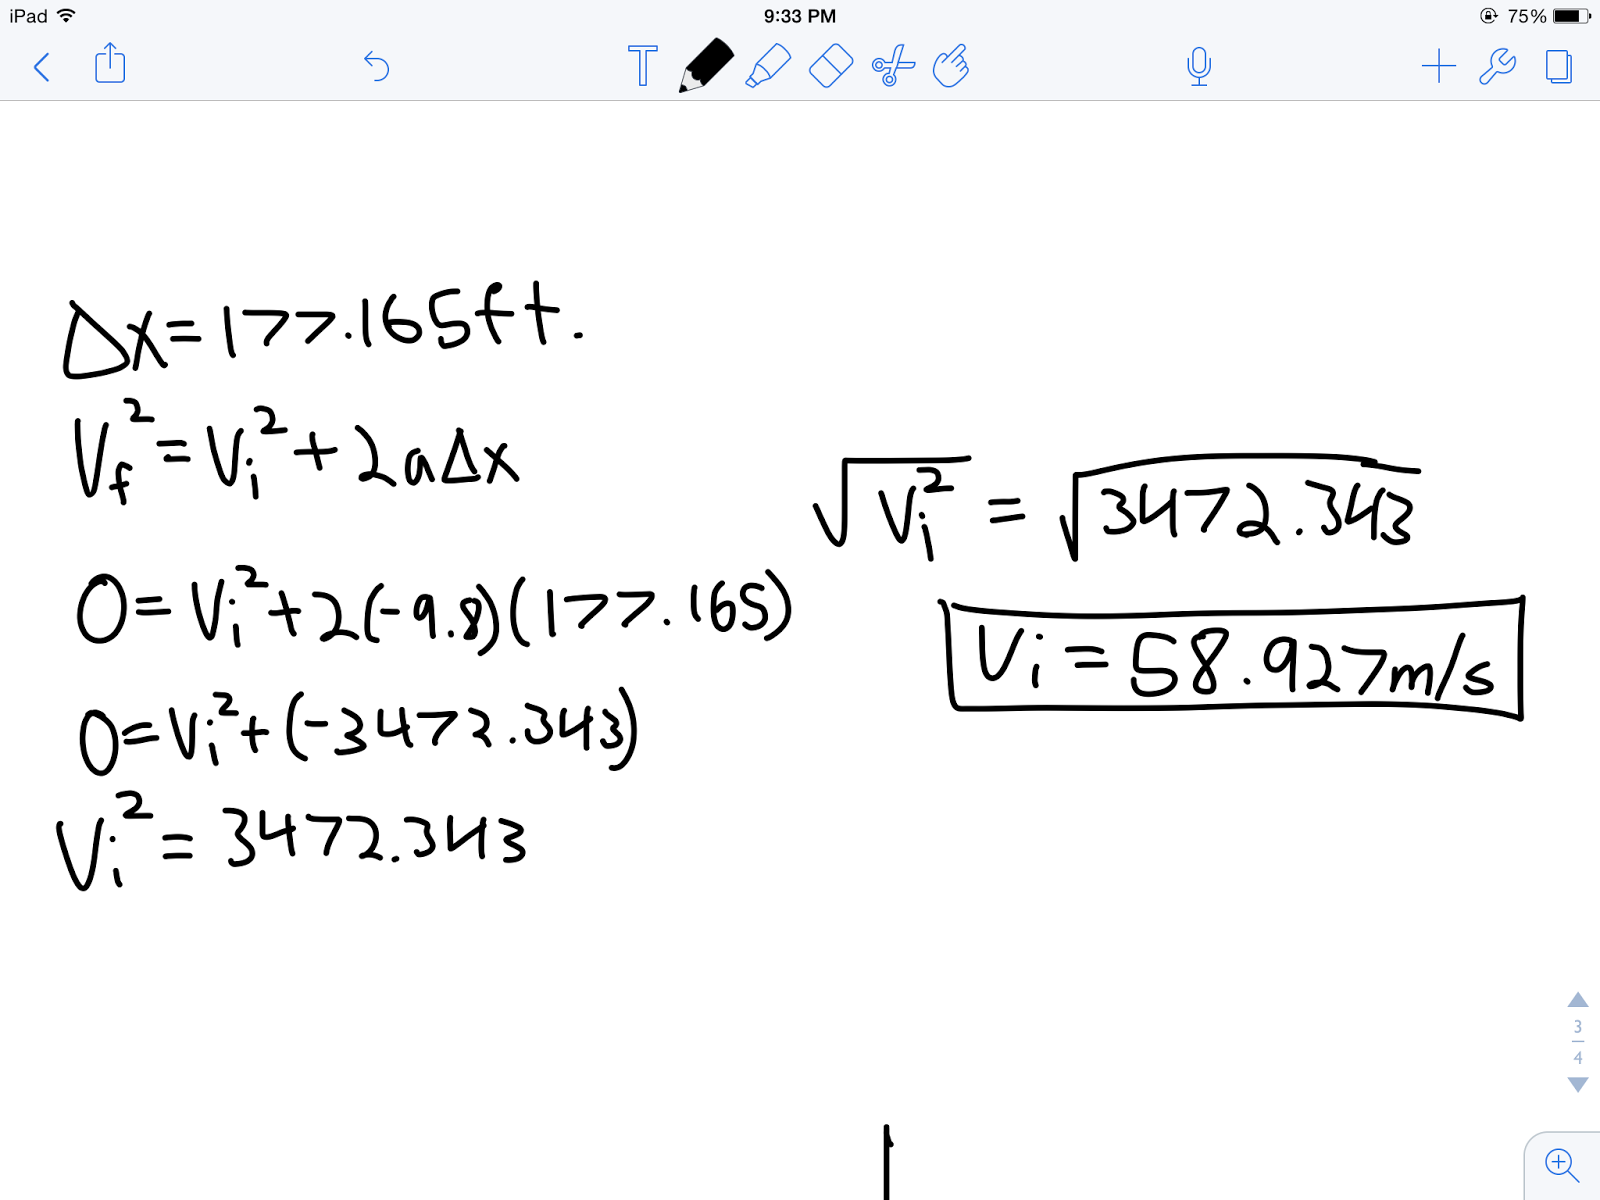 iPad 9:33 PM 75%
T
Δx = 177.165ft.
Vf² = Vi² + 2aΔx
0 = Vi² + 2(-9.8)(177.165)
0 = Vi² + (-3472.343)
Vi² = 3472.343
√Vi² = √3472.343
Vi = 58.927m/s
3
4